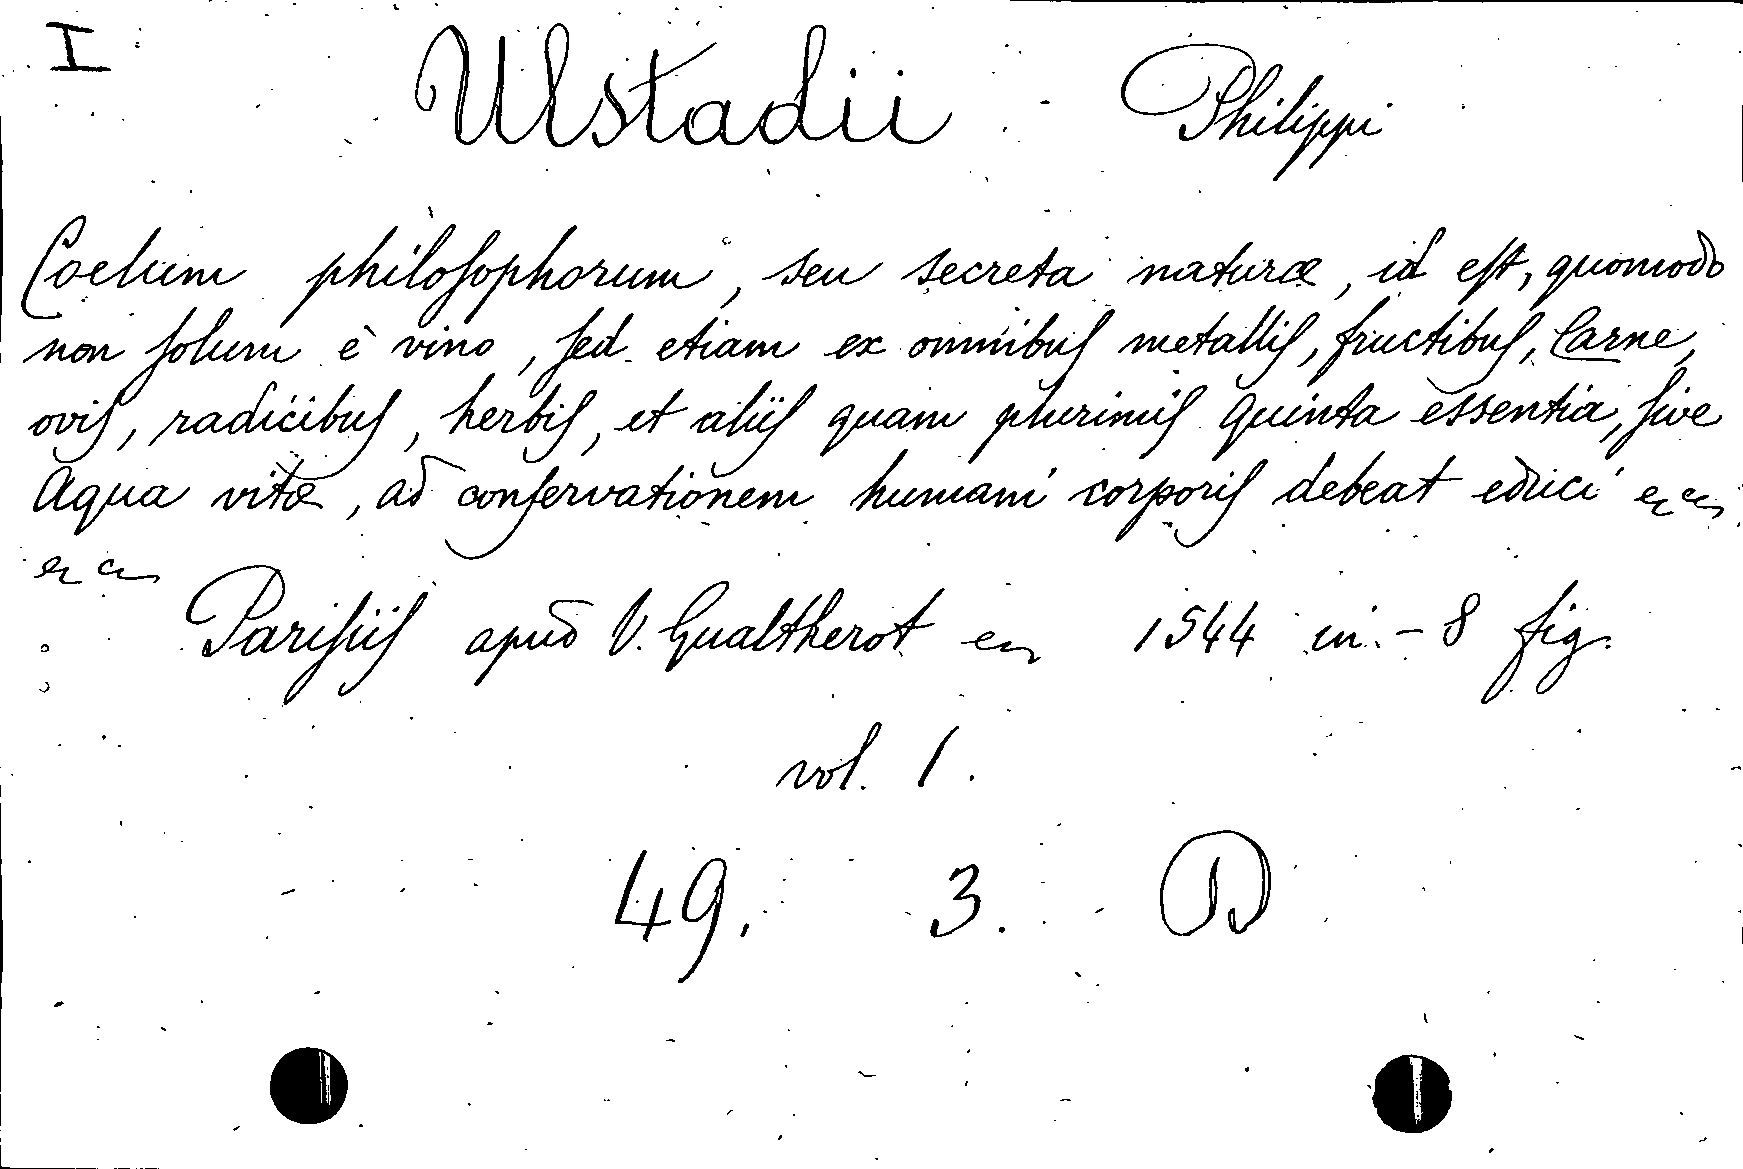 I
Ulstadii Philippi
Coelum philoſophorum, seu secreta naturæ, id eſt, quomodo
non ſolum è vino, ſed etiam ex omnibuſ metalliſ, fructibuſ, Carne,
oviſ, radicibuſ, herbiſ, et aliiſ quam plurimiſ quinta essentia, ſive
Aqua vitæ, ad conſervationem humani corporiſ debeat educi
Pariſiiſ apud V. Gualtherot 1544 in-8 fig.
vol. 1.
49. 3. D